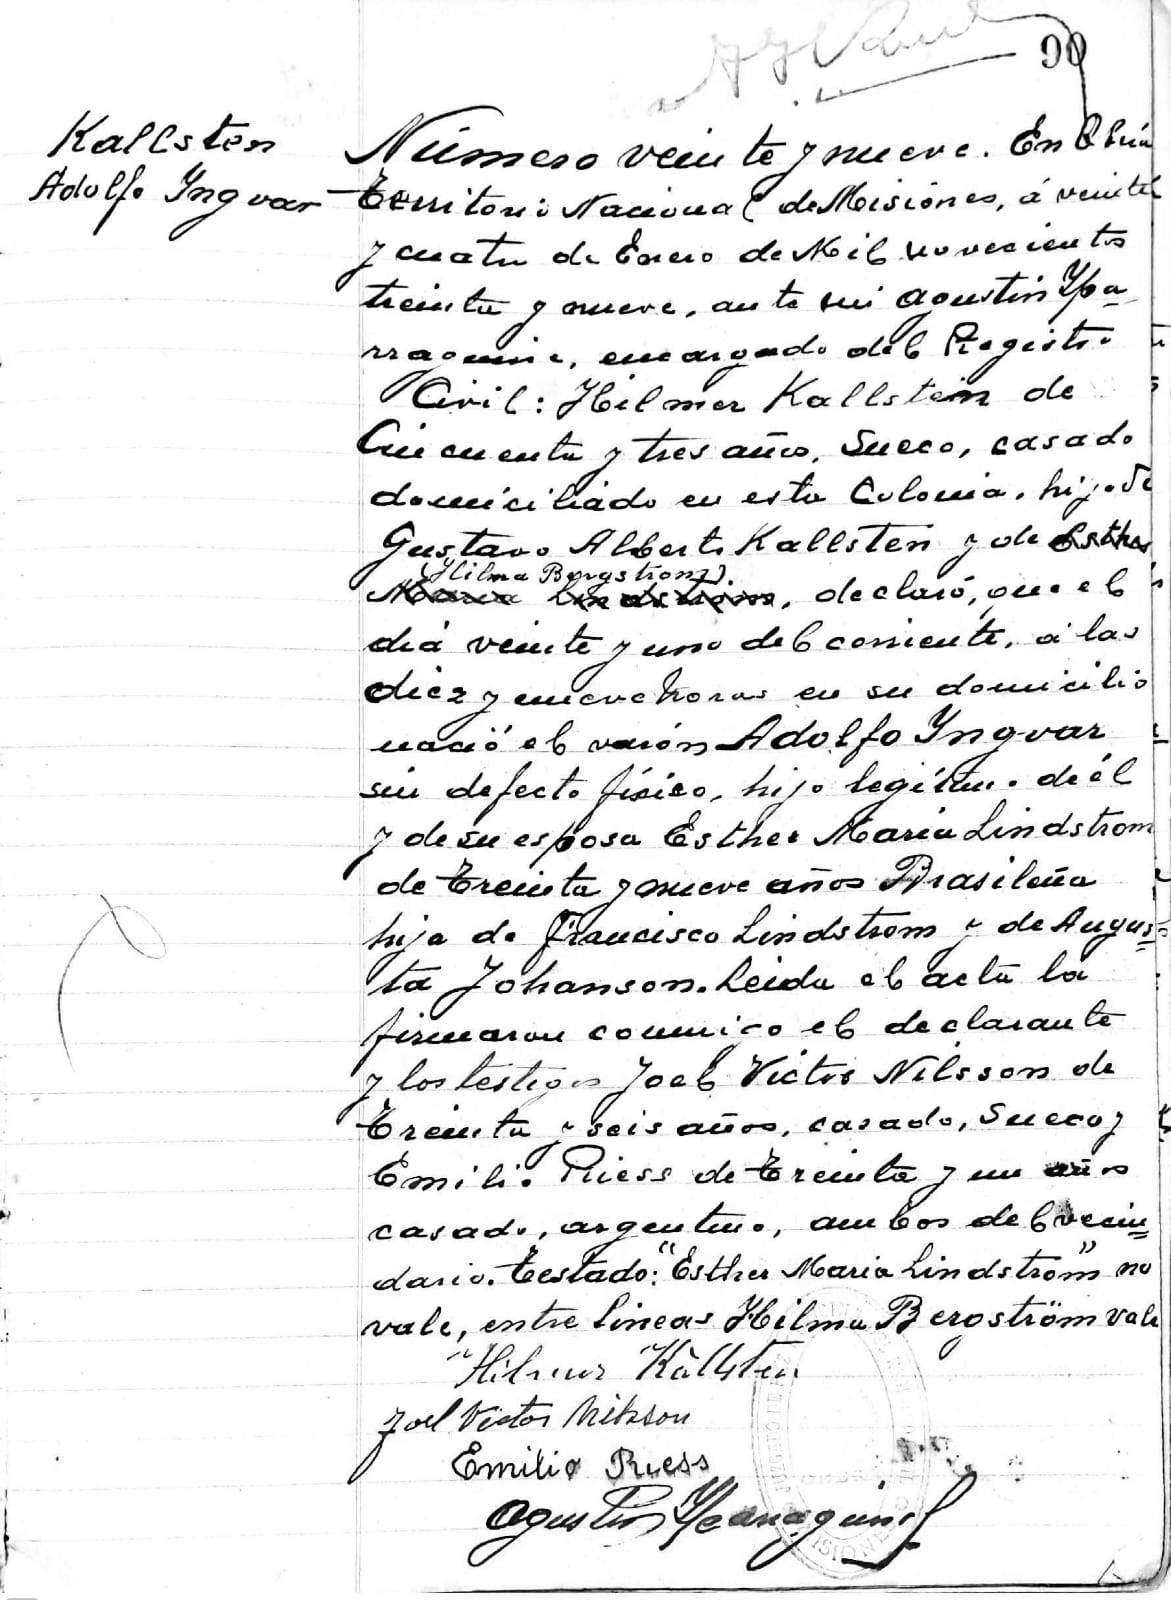 90
Kallsten
Adolfo Yngvar
Número veinte y nueve. En Oberá
Territorio Nacional de Misiónes, á veinte
y cuatro de Enero de Mil novecientos
treinta y nueve, ante mi Agustin Ypa-
rraguirre, encargado del Registro
Civil: Hilmer Kallsten de
Cincuenta y tres años, Sueco, casado
domiciliado en esta Colonia, hijo de
Gustavo Alberto Kallsten y de Esther
(Hilma Bergstrom)
Maria Lindstrom, declaró, que el
diá veinte y uno del corriente, a las
diez y nueve horas en su domicilio
nació el varón Adolfo Yngvar
sin defecto físico, hijo legítimo de él
y de su esposa Esther Maria Lindstrom
de treinta y nueve años Brasileña
hija de Francisco Lindstrom y de Augus=
ta Johanson. Leida el acta la
firmaron conmigo el declarante
y los testigos Joel Victor Nilsson de
treinta y seis años, casado, Sueco y
Emilio Riess de treinta y un años
casado, argentino, ambos del vecin=
dario. Testado: "Esther Maria Lindström" no
vale, entre lineas Hilma Bergström vale
"Hilmer Källsten
Joel Victor Nilsson
Emilio Riess
Agustin Yparraguirre